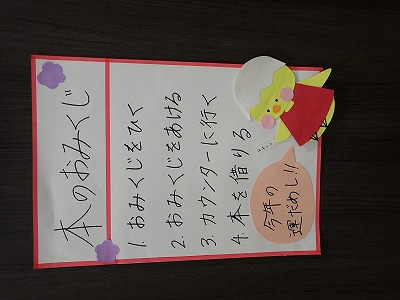 本のおみくじ
1. おみくじをひく
2. おみくじをあける
3. カウンターに行く
4. 本を借りる
今年の
運だめし!!